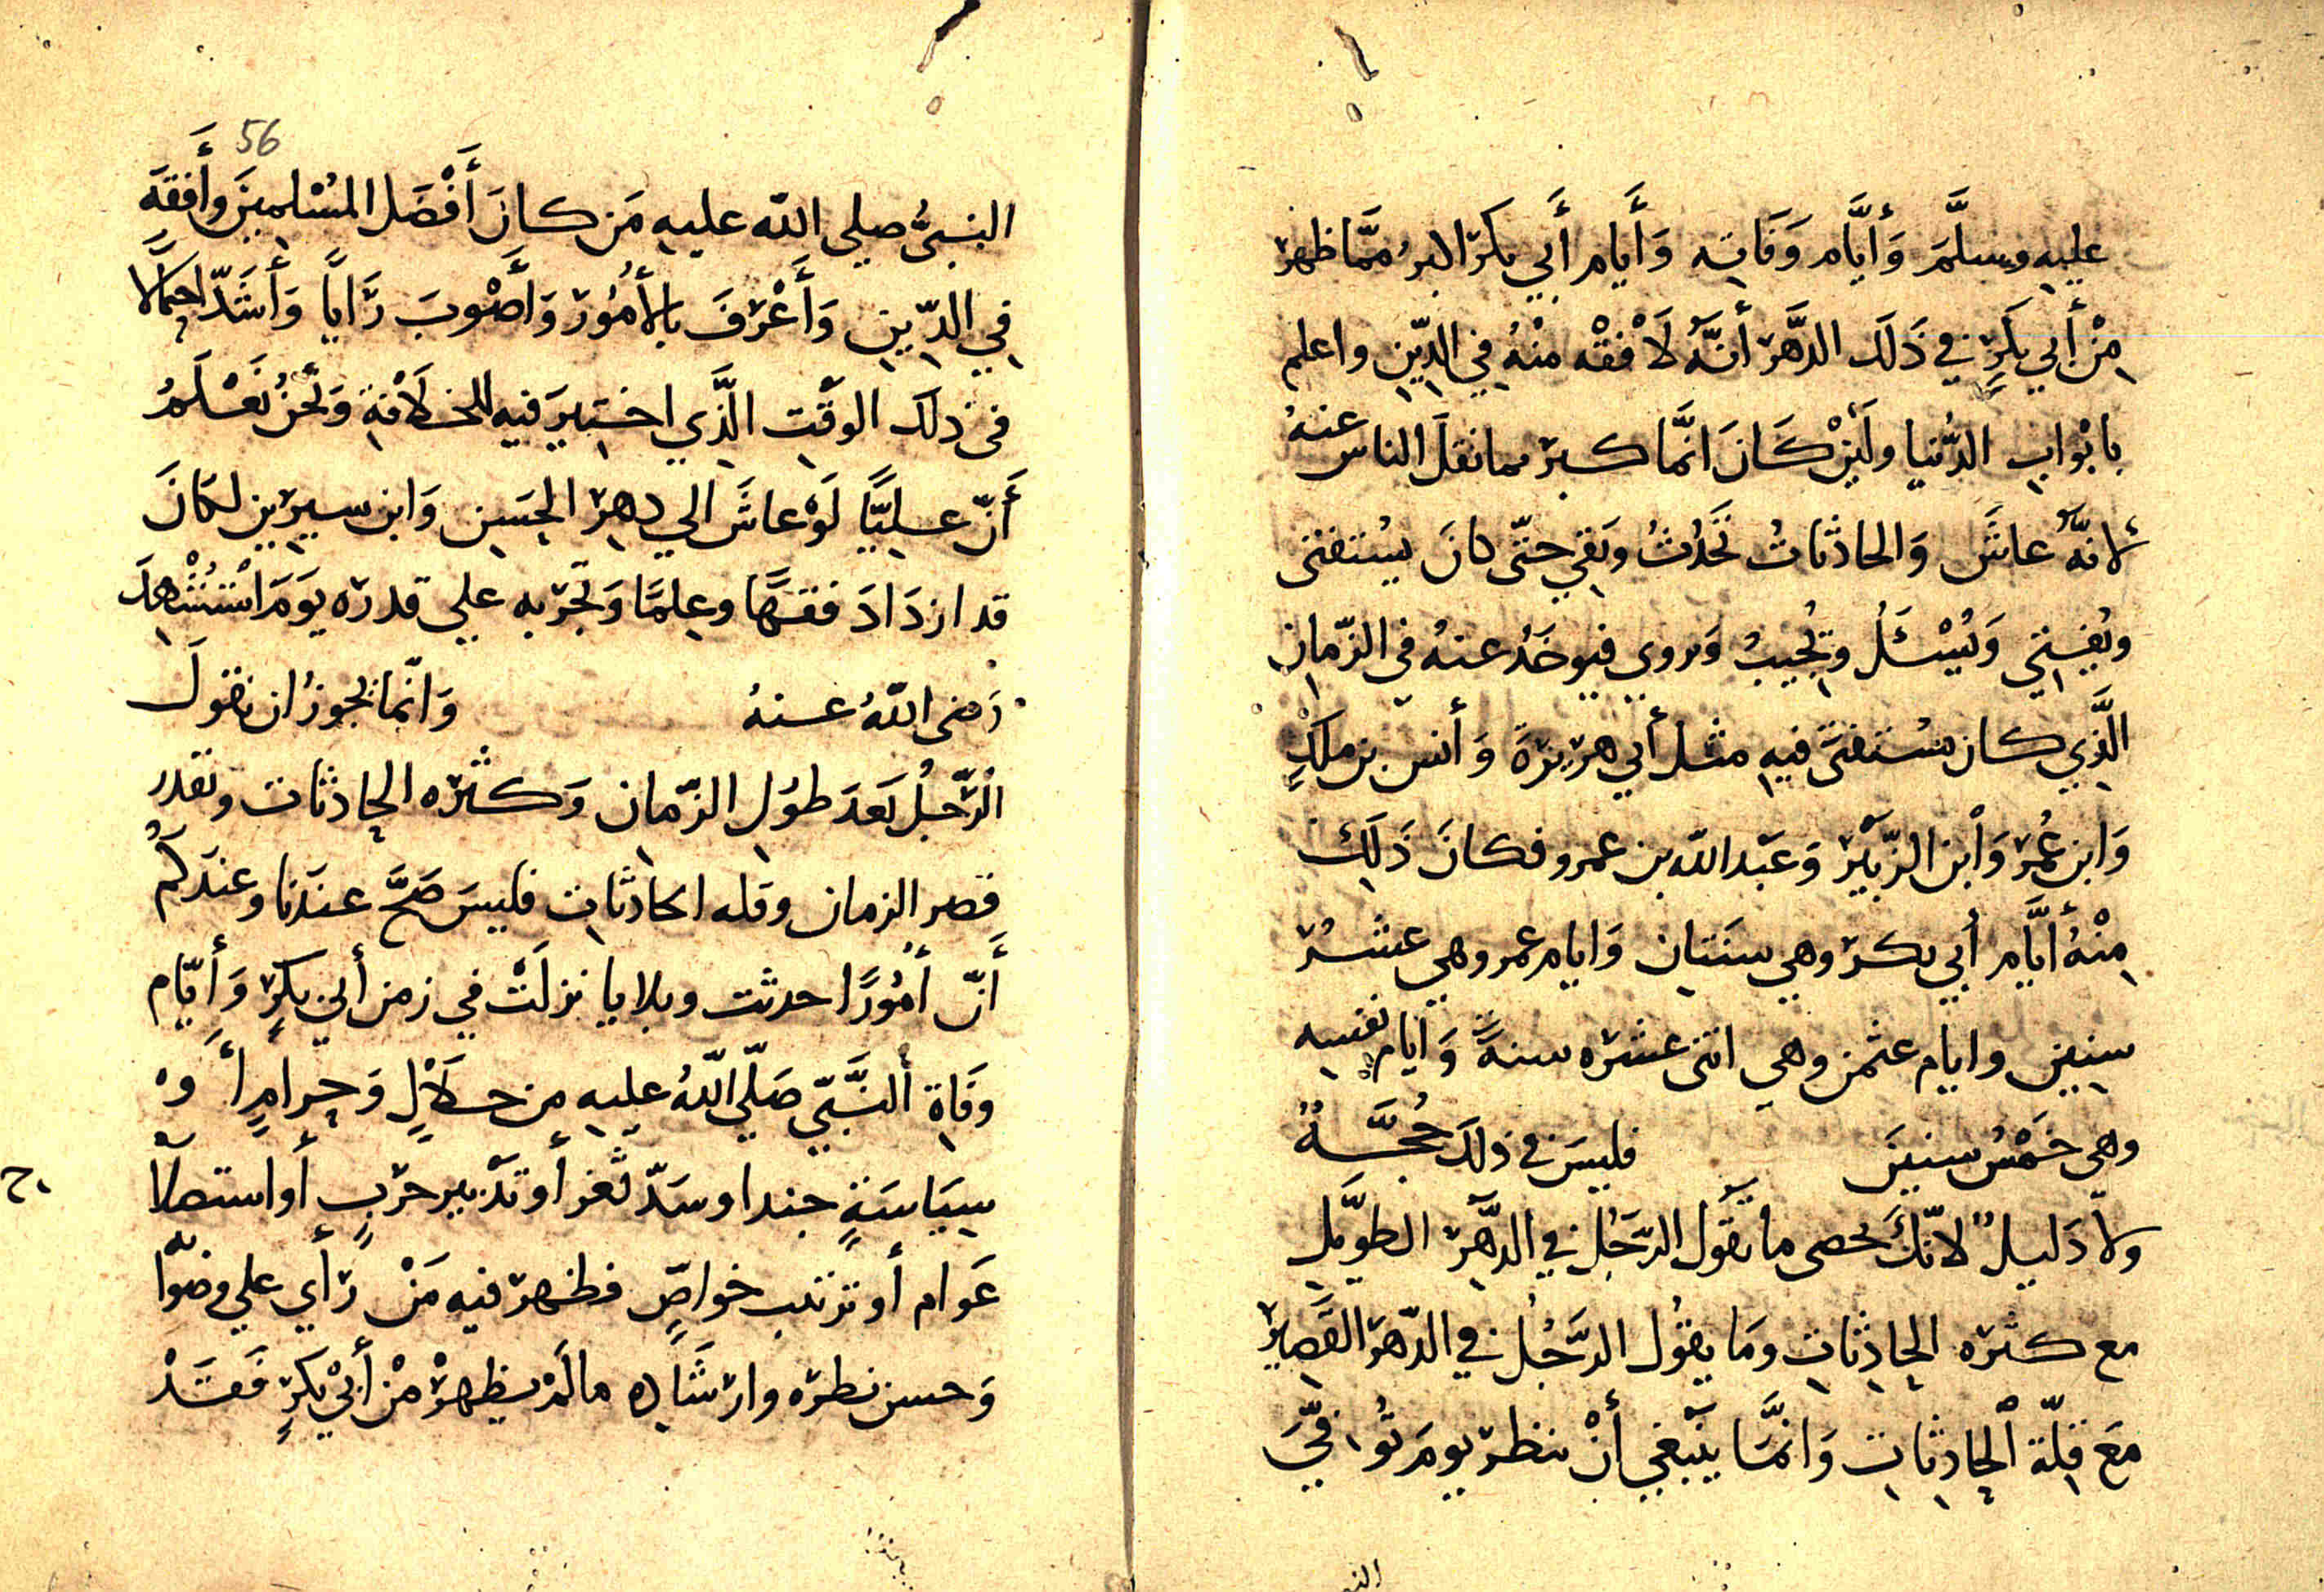 عليه وسلَّمَ وَأيَّام وَفَاتِه وَأَيام أَبي بكر اكثرُ ممَّا ظهرَ
مِنْ أَبي بكرٍ في ذَلكَ الدَّهر أنَّهُ لَأَفْقَه مِنْهُ في الدِّين واعلم
بابْوابِ الدُّنيا ولَئِنْ كَانَ انَّما كبر مما نقلَ الناس عنهُ
لأنَّهُ عاشَ وَالحادثاتُ تَحَدثُ وبَقي حتّى كانَ يُستفتى
ويُفتِي وَيُسْئَلُ ويُجيبُ وَيروي فيوخَذُ عنهُ في الزّمانِ
الَّذِي كان يستفتَى فيهِ مثل أَبي هريرَةَ وَأنس بن ملكٍ
وَابن عُمرَ وَابْن الزّبَيْر وَعَبْد الله بن عمرو فكانَ ذَلِكَ
مِنْهُ أيَّام أبي بكر وهي سنَتانِ وَايام عمر وهي عشرُ
سنِينَ وايام عثمن وهي اثنى عشره سنةً وَايام نفسِه
وهي خَمْسُ سنينَ فليسَ في ذلكَ حُجَّةٌ
ولا دَليلٌ لانّكَ تحصى ما يقُول الرَّجُل في الدَّهْر الطويَلِ
مع كثره الحادِثاتِ وَما يقُول الرَّجُل في الدّهرَ القَصيرِ
مَعَ قِلّة الْحادِثاتِ وَانمَّا ينَبغي أنْ ينظر يومَ تُوفّيَ
56
النبىُّ صلي الله عليهِ مَن كانَ أَفْضَل المُسْلمينَ وأَفقهَ
في الدِّينِ وَأَعْرَفَ بالأمُور وَأَصْوبَ رَاياً وَأشَدّ احتمالا
في ذلكَ الوَقْتِ الَّذِي اختيرَ فيه للخلَافةِ وَنَحْنُ نَعْلَمُ
أَنّ عليًّا لَوْ عاشَ الي دهِرِ الحسَنِ وَابن سيرين لكانَ
قد ازدَادَ فقهًا وعِلمًا وَتجربه علي قدره يَوَمَ اسْتُشْهِدَ
رَضى اللهُ عنهُ وَانّما يجوزُ ان نقولَ
الرّجلُ بَعَدَ طوُلِ الزّمانِ وَكثره الحادثات ونقدر
قصر الزمان وقله الحادثاتِ فليسَ صَحَّ عندَنا وعندَكُم
أَنّ أمُورًا حدثت وبلايا نزلَتْ في زمن أبي بكرٍ وَأيّام
وفَاةِ النَّبيّ صَلّي اللهُ عليهِ مِن حلاْلٍ وَحرامٍ أَ وْ
سيَاسَةِ جند او سَدّ ثَغر أو تدْبير حرْبٍ أو استصلا
ح
عَوام أو ترتيب خواصٍّ فظهرَ فيهِ مَنْ رَأي علي وصوا
به
وَحسن نظره وارشَادِه مالَمْ يظهرْ مْن أبيْ بكرٍ فَقَدْ